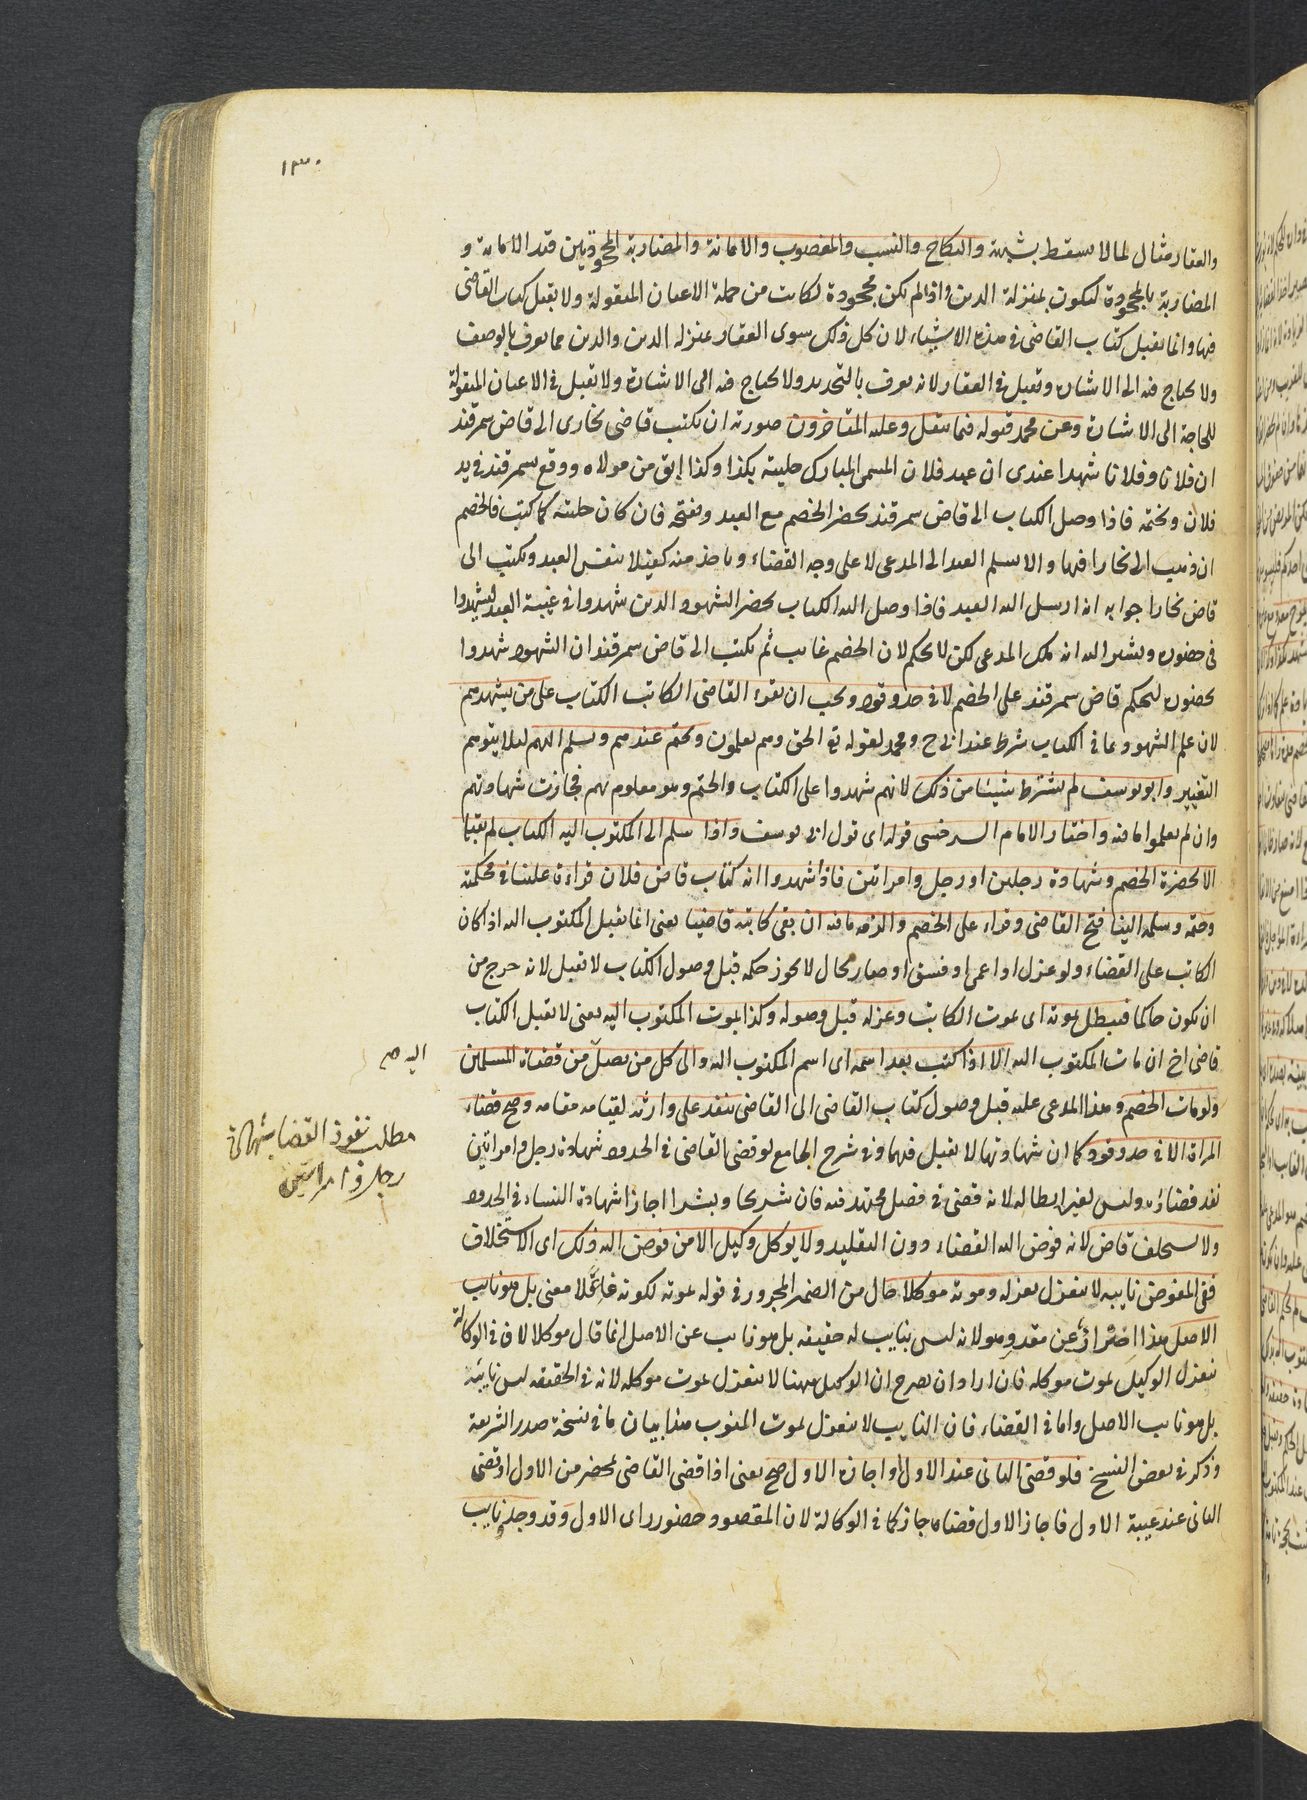 ١٣٠
والعقار مثال لما لا يسقط بشبهة والنكاح والنسب والمغصوب والامانة والمضاربة المجحودتين قيد الامانة و
المضاربة بالمجحودة ليكون بمنزلة الدين واذا لم يكن مجحودة لكانت من جملة الاعيان المنقولة ولا يقبل كتاب القاضى
فيها وانما يقبل كتاب القاضى فى هذه الاشياء لان كل ذلك سوى العقار بمنزلة الدين والدين مما يعرف بالوصف
ولا يحتاج فيه الى الاشارة وتقبل فى العقار لانه يعرف بالتحديد ولا يحتاج فيه الى الاشارة ولا تقبل فى الاعيان المنقولة
للحاجة الى الاشارة وعن محمد قبوله فيما ينقل وعليه المتاخرون صورته ان يكتب قاضى بخارى الى قاض سمرقند
ان فلانا وفلانا شهدا عندى ان عبد فلان المسمى المبارك حليته بكذا وكذا ابق من مولاه ووقع بسمرقند فى يد
فلان ويختمه فاذا وصل الكتاب الى قاض سمرقند يحضر الخصم مع العبد ويفتحه فان كان حليته كما كتب فالخصم
ان ذهب الى بخارا فبها والا يسلم العبد الى المدعى لا على وجه القضاء وياخذ منه كفيلا بنفس العبد ويكتب الى
قاض بخارا جوابه انه ارسل اليه العبد فاذا وصل اليه الكتاب يحضر الشهود الذين شهدوا فى غيبة العبد ليشهدوا
فى حضوره ويشير اليه انه ملك المدعى لكن لا يحكم لان الخصم غايب ثم يكتب الى قاض سمرقند ان الشهود شهدوا
بحضوره ليحكم قاض سمرقند على الخصم لا فى حد وقود ويجب ان يقرء القاضى الكاتب الكتاب على من يشهدهم
لان علم الشهود بما فى الكتاب شرط عند ابى ح ومحمد لقوله تع الحق وهم يعلمون ويختم عندهم ويسلم اليهم ليلا يتوهم
التغيير وابو يوسف لم يشترط شيئا من ذلك لانهم شهدوا على الكتاب والختم وهو معلوم لهم فجازت شهادتهم
وان لم يعلموا ما فيه واختار الامام السرخسى قوله اى قول ابى يوسف واذا سلم الى المكتوب اليه الكتاب لم يقبل
الا بحضرة الخصم وشهادة رجلين او رجل وامراتين فاذا شهدوا انه كتاب قاض فلان قراءة علينا فى محكمته
وختمه وسلمه الينا فتح القاضى وقراء على الخصم والزمه ما فيه ان بقى كاتبه قاضيا يعنى انما يقبل المكتوب اليه اذا كان
الكاتب على القضاء ولو عزل او اعمى او فسق او صار بحال لا يجوز حكمه قبل وصول الكتاب لا تقبل لانه خرج من
ان يكون حاكما فيبطل بموته اى بموت الكاتب وعزله قبل وصوله وكذا بموت المكتوب اليه يعنى لا يقبل الكتاب
قاضى اخ ان مات المكتوب اليه الا اذا كتب بعد اسمه اى اسم المكتوب اليه والى كل من يصل من قضاة المسلمين
اليه صح
ولو مات الخصم وهذا المدعى عليه قبل وصول كتاب القاضى الى القاضى ينفذ على وارثه لقيامه مقامه وصح قضاء
المراة الا فى حد وقود كما ان شهادتها لا تقبل فيهما وفى شرح الجامع لو قضى القاضى فى الحدود شهادة رجل وامراتين
مطلب نفوذ القضا بشهادة
رجل وامراتين
نفذ قضاؤه وليس لغير ابطاله لانه قضى فى فصل مجتهد فيه فان شريحا وبشرا اجازا شهادة النساء فى الحدود
ولا يستخلف قاض لانه فوض اليه القضاء دون التقليد ولا يوكل وكيل الا من فوض اليه ذلك اى الاستخلاف
ففى المفوض نايبه لا ينعزل بعزله وموته موكلا حال من الضمير المجرور فى قوله بموته لكونه فاعلا معنى بل هو نايب
الاصل هذا احترازٌ عن مقدر وهو لانه ليس بنايب له حقيقه بل هو نايب عن الاصل انما قال موكلا لان فى الوكالة
ينعزل الوكيل بموت موكله فان اراد ان يصرح ان الوكيل ههنا لا ينعزل بموت موكله لانه فى الحقيقه ليس نايبه
بل هو نايب الاصل واما فى القضاء فان النايب لا ينعزل بموت المنوب هذا بيان ما فى نسخة صدر الشريعة
وذكر فى بعض النسخ فلو قضى الثانى عند الاول او اجازه الاول صح يعنى اذا قضى القاضى بمحضر من الاول او قضى
الثانى عند غيبة الاول فاجاز الاول قضاه جاز كما فى الوكالة لان المقصود حضور راى الاول وقد وجد نايب